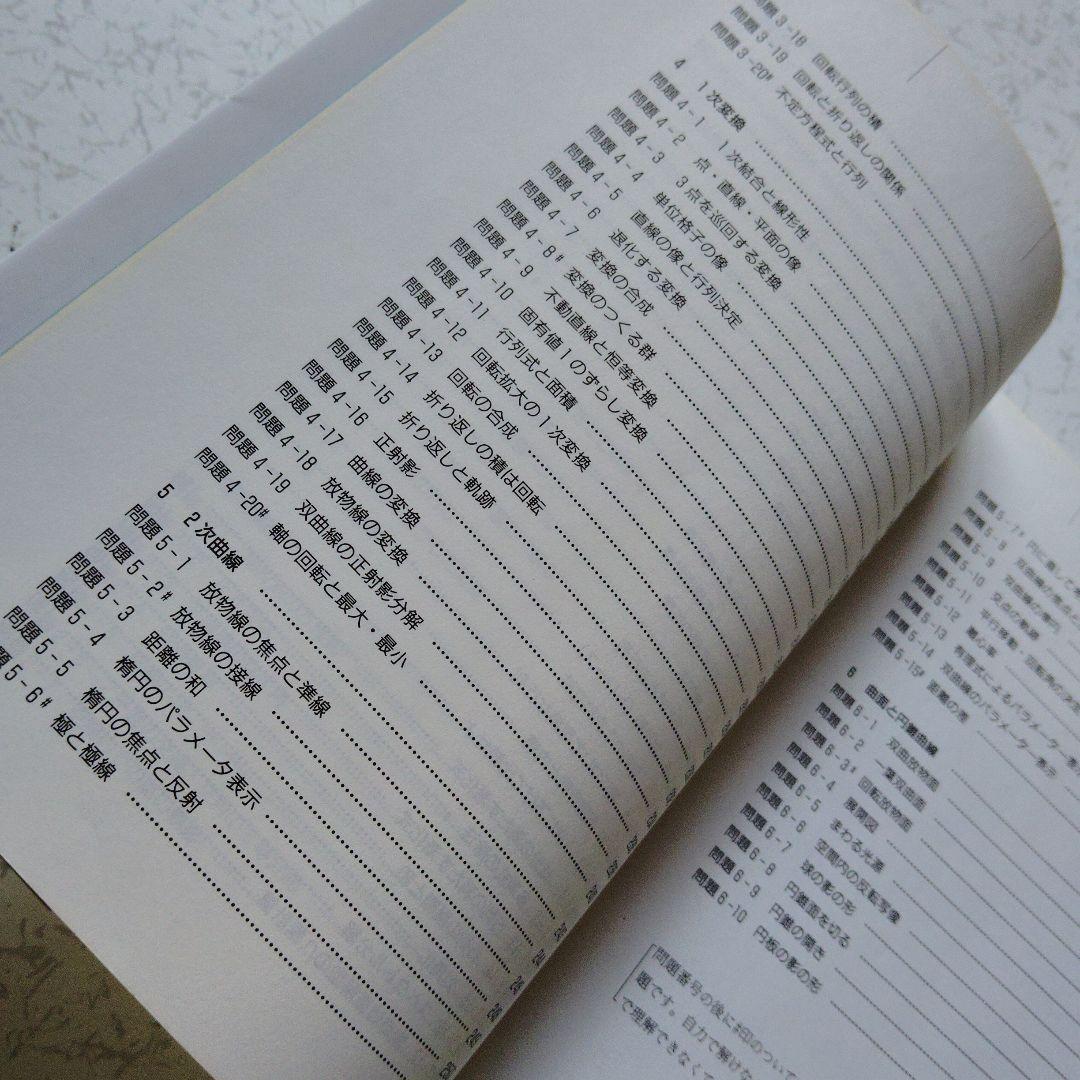 問題3-18 回転行列の積
問題3-19 回転と折り返しの関係
問題3-20# 不定方程式と行列
4 1次変換
問題4-1 1次結合と線形性
問題4-2 点・直線・平面の像
問題4-3 3点を巡回する変換
問題4-4 単位格子の像
問題4-5 直線の像と行列決定
問題4-6 退化する変換
問題4-7 変換の合成
問題4-8# 変換のつくる群
問題4-9 不動直線と恒等変換
問題4-10 固有値1のずらし変換
問題4-11 行列式と面積
問題4-12 回転拡大の1次変換
問題4-13 回転の合成
問題4-14 折り返しの積は回転
問題4-15 折り返しと軌跡
問題4-16 正射影
問題4-17 曲線の変換
問題4-18 放物線の変換
問題4-19 双曲線の正射影分解
問題4-20# 軸の回転と最大・最小
5 2次曲線
問題5-1 放物線の焦点と準線
問題5-2# 放物線の接線
問題5-3 距離の和
問題5-4 楕円のパラメータ表示
問題5-5 楕円の焦点と反射
題5-6# 極と極線
問題5-8 双曲線の焦点と
問題5-9 双曲線の
問題5-10 交点の軌跡
問題5-11 平行移動・回転
問題5-12 離心率
問題5-13 有理式によるパラメーター
問題5-14 双曲線のパラメーター表示
問題5-15# 距離の差
6 曲面と円錐曲線
問題6-1 双曲放物面
問題6-2 一葉双曲面
問題6-3# 回転放物面
問題6-4 展開図
問題6-5 まわる光源
問題6-6 空間内の反転写像
問題6-7 球の影の形
問題6-8 円錐面を切る
問題6-9 円錐の開き
問題6-10 円板の影の形
問題番号の後に#印のついて
題です。自力で解けな
で理解できなくて